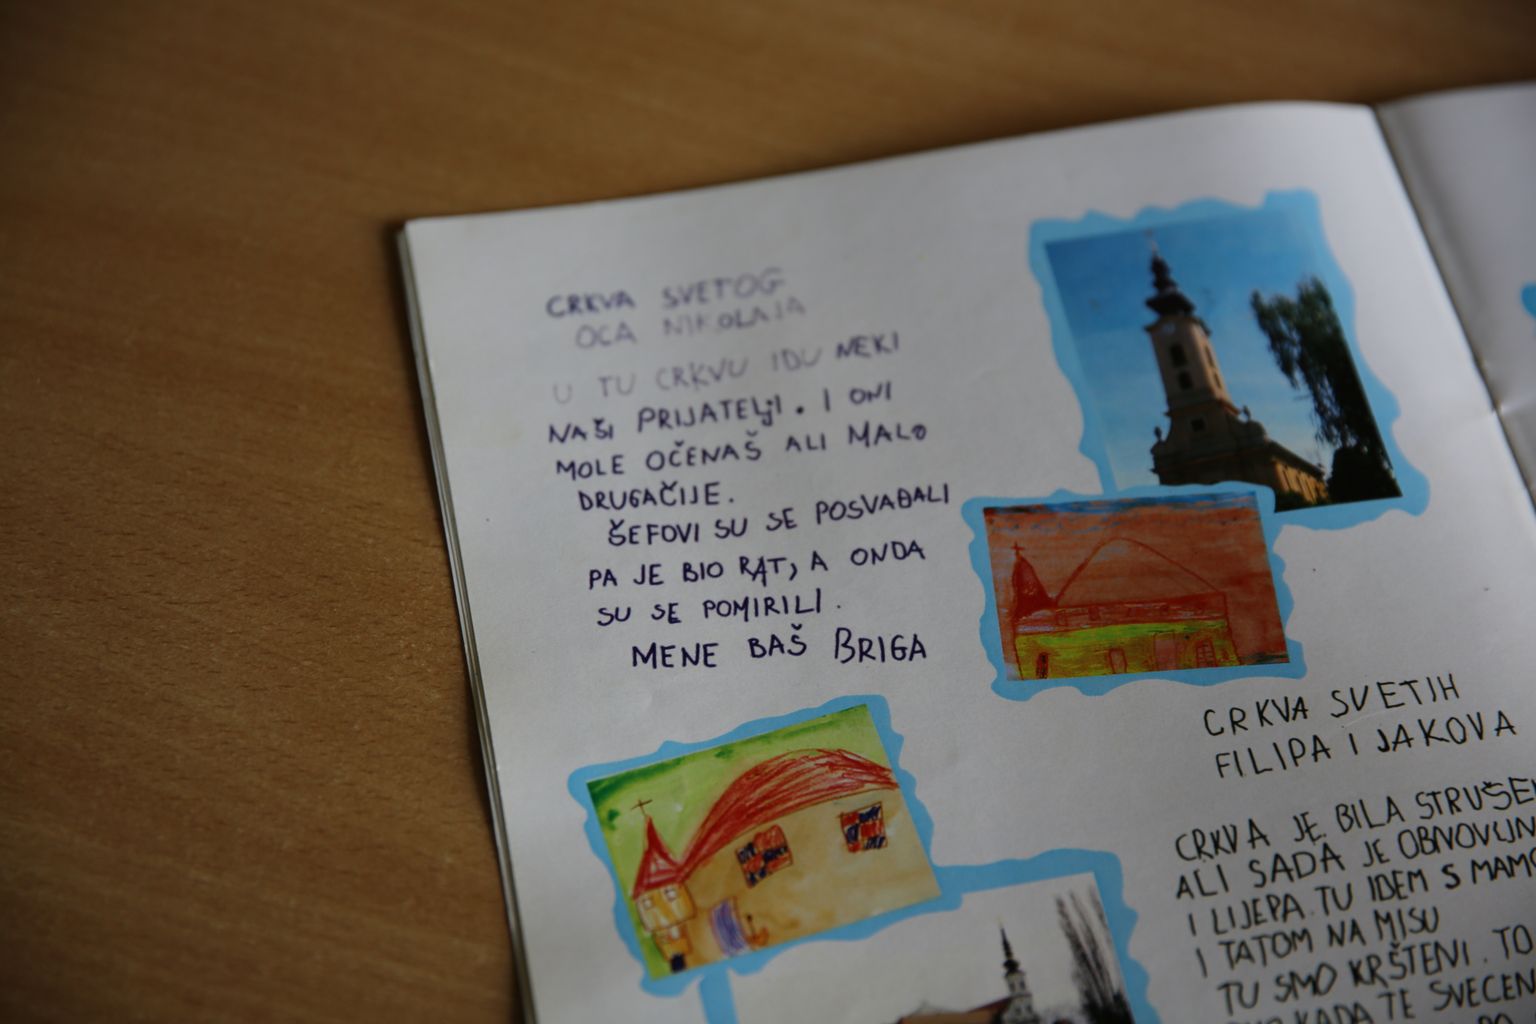 CRKVA SVETOG
OCA NIKOLAJA
U TU CRKVU IDU NEKI
NAŠI PRIJATELJI. I ONI
MOLE OČENAŠ ALI MALO
DRUGAČIJE.
ŠEFOVI SU SE POSVAĐALI
PA JE BIO RAT, A ONDA
SU SE POMIRILI.
MENE BAŠ BRIGA
CRKVA SVETIH
FILIPA I JAKOVA
CRKVA JE BILA
ALI SADA JE
I LIJEPA. TU IDEM S
I TATOM NA MISU
TU SMO KRŠTENI. TO
KADA TE